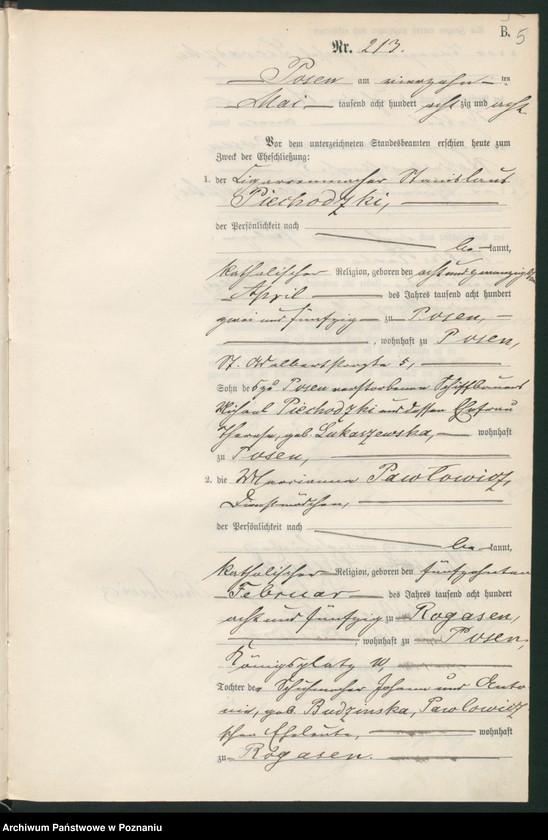 B.
5
Nr. 213.
Posen am vierzehnten
Mai tausend acht hundert achtzig und acht
Vor dem unterzeichneten Standesbeamten erschien heute zum
Zweck der Eheschließung:
1. der Cigarrenmacher Stanislaus
Piechodzki,
der Persönlichkeit nach
bekannt,
katholischer Religion, geboren den acht und zwanzigsten
April des Jahres tausend acht hundert
zwei und fünfzig zu Posen,
, wohnhaft zu Posen,
St. Adalbertstraße 5,
Sohn des zu Posen verstorbenen Schiffbauers
Michael Piechodzki und dessen Ehefrau
Therese, geb. Lukaszewska, wohnhaft
zu Posen,
2. die Marianna Pawłowicz,
Dienstmädchen,
der Persönlichkeit nach
bekannt,
katholischer Religion, geboren den fünfzehnten
Februar des Jahres tausend acht hundert
acht und fünfzig zu Rogasen,
, wohnhaft zu Posen,
Königsplatz
Tochter der Schuhmacher Johann und Anto
nie, geb. Budzinska, Pawlowicz
schen Eheleute, wohnhaft
zu Rogasen.
Archiwum Państwowe w Poznaniu